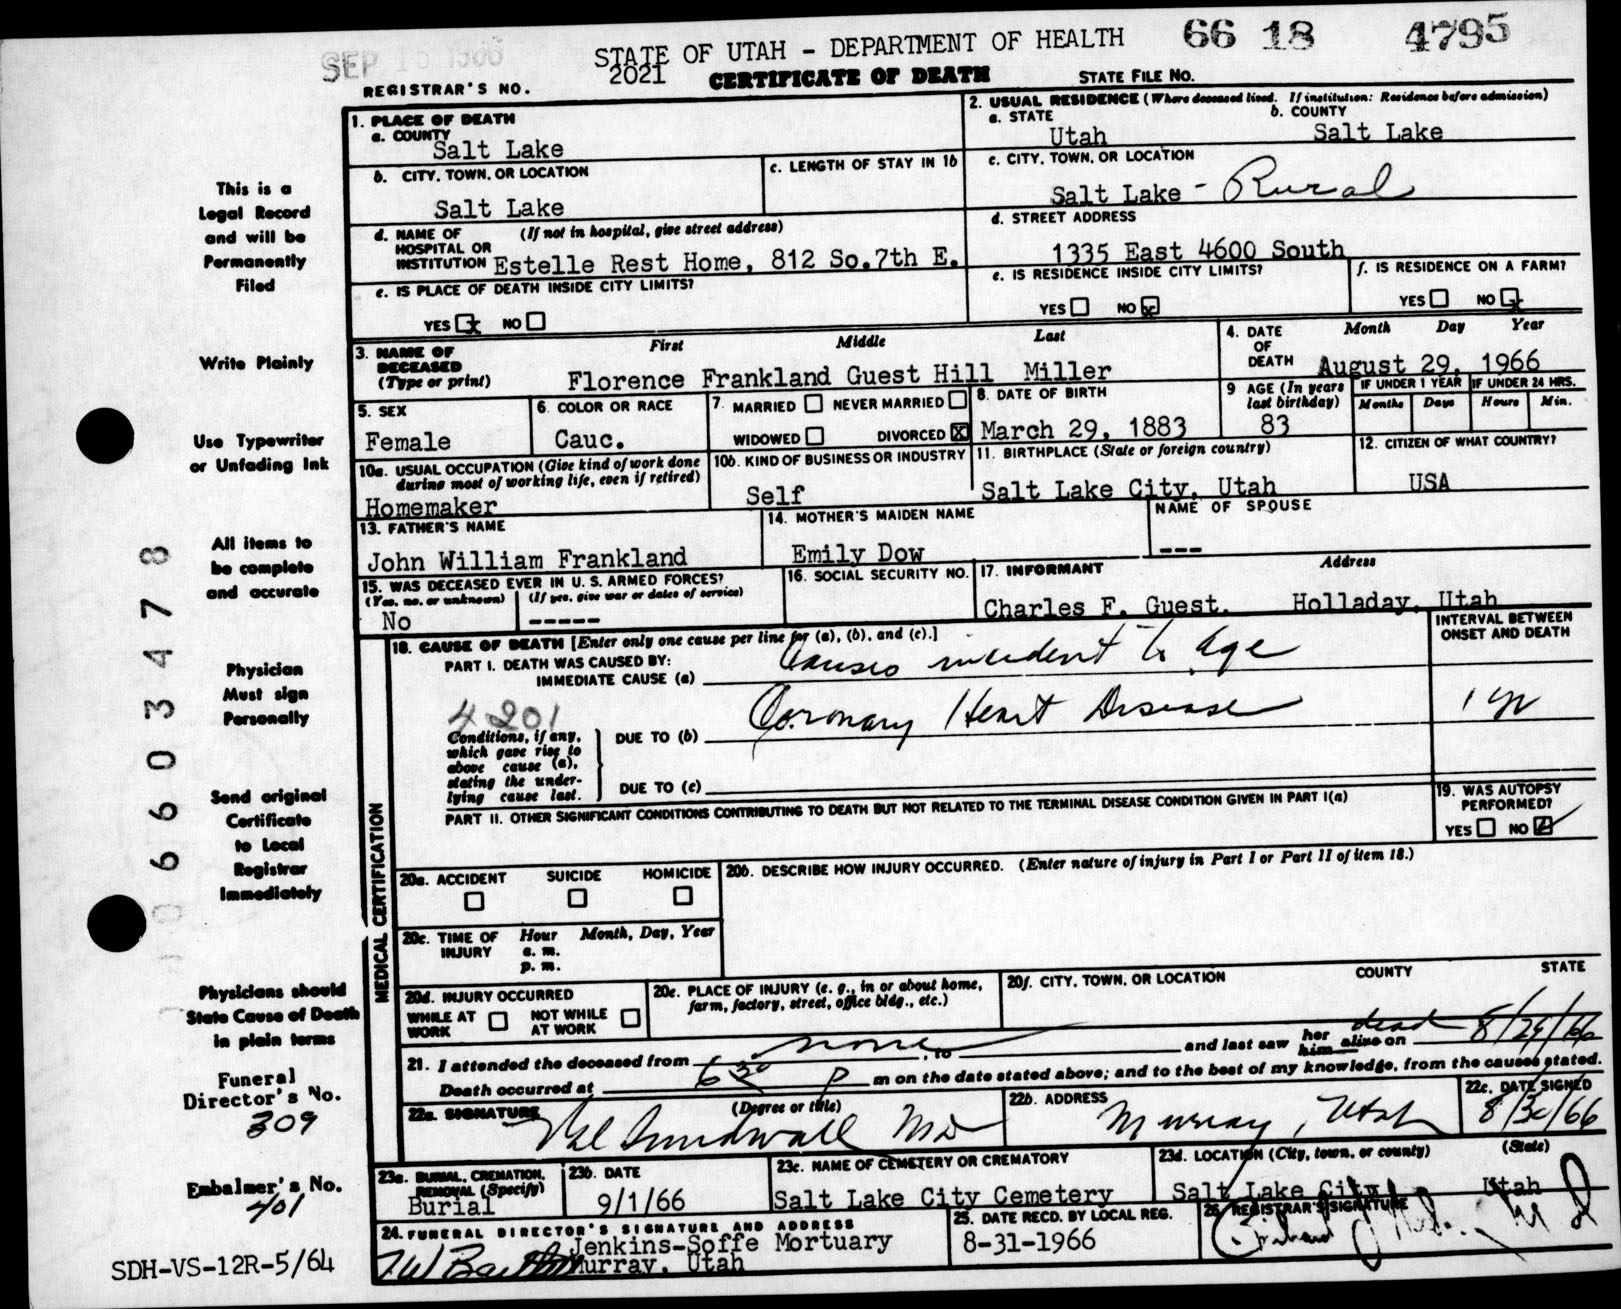 SEP 1966
STATE OF UTAH - DEPARTMENT OF HEALTH 66 18 4795
REGISTRAR'S NO. 2021 CERTIFICATE OF DEATH STATE FILE NO.
1. PLACE OF DEATH
a. COUNTY
Salt Lake
2. USUAL RESIDENCE (Where deceased lived. If institution: Residence before admission)
a. STATE b. COUNTY
Utah Salt Lake
b. CITY, TOWN, OR LOCATION
Salt Lake
c. LENGTH OF STAY IN 1b
c. CITY, TOWN, OR LOCATION
Salt Lake - Rural
d. NAME OF HOSPITAL OR INSTITUTION (If not in hospital, give street address)
Estelle Rest Home, 812 So.7th E.
d. STREET ADDRESS
1335 East 4600 South
e. IS PLACE OF DEATH INSIDE CITY LIMITS?
YES x NO
e. IS RESIDENCE INSIDE CITY LIMITS?
YES NO x
f. IS RESIDENCE ON A FARM?
YES NO x
3. NAME OF DECEASED (Type or print)
First Middle Last
Florence Frankland Guest Hill Miller
4. DATE OF DEATH Month Day Year
August 29, 1966
5. SEX
Female
6. COLOR OR RACE
Cauc.
7. MARRIED NEVER MARRIED
WIDOWED DIVORCED X
8. DATE OF BIRTH
March 29, 1883
9 AGE (In years last birthday)
83
IF UNDER 1 YEAR IF UNDER 24 HRS.
Months Days Hours Min.
10a. USUAL OCCUPATION (Give kind of work done during most of working life, even if retired)
Homemaker
10b. KIND OF BUSINESS OR INDUSTRY
Self
11. BIRTHPLACE (State or foreign country)
Salt Lake City, Utah
12. CITIZEN OF WHAT COUNTRY?
USA
13. FATHER'S NAME
John William Frankland
14. MOTHER'S MAIDEN NAME
Emily Dow
NAME OF SPOUSE
---
15. WAS DECEASED EVER IN U. S. ARMED FORCES?
(Yes, no, or unknown) (If yes, give war or dates of service)
No -----
16. SOCIAL SECURITY NO.
17. INFORMANT Address
Charles F. Guest. Holladay, Utah
MEDICAL CERTIFICATION
18. CAUSE OF DEATH [Enter only one cause per line for (a), (b), and (c).]
INTERVAL BETWEEN ONSET AND DEATH
PART I. DEATH WAS CAUSED BY:
IMMEDIATE CAUSE (a) Causes incident to age
4201
Conditions, if any, which gave rise to above cause (a), stating the underlying cause last.
DUE TO (b) Coronary Heart Disease 1 yr
DUE TO (c)
PART II. OTHER SIGNIFICANT CONDITIONS CONTRIBUTING TO DEATH BUT NOT RELATED TO THE TERMINAL DISEASE CONDITION GIVEN IN PART I(a)
19. WAS AUTOPSY PERFORMED?
YES NO
20a. ACCIDENT SUICIDE HOMICIDE
20b. DESCRIBE HOW INJURY OCCURRED. (Enter nature of injury in Part I or Part II of item 18.)
20c. TIME OF INJURY Hour Month, Day, Year
a. m.
p. m.
20d. INJURY OCCURRED
WHILE AT WORK NOT WHILE AT WORK
20e. PLACE OF INJURY (e. g., in or about home, farm, factory, street, office bldg., etc.)
20f. CITY, TOWN, OR LOCATION COUNTY STATE
21. I attended the deceased from none, to and last saw her him alive on dead 8/29/66
Death occurred at 6 30 p m on the date stated above; and to the best of my knowledge, from the causes stated.
22a. SIGNATURE (Degree or title)
Val Sundwall MD
22b. ADDRESS
Murray, Utah
22c. DATE SIGNED
8/30/66
23a. BURIAL, CREMATION, REMOVAL (Specify)
Burial
23b. DATE
9/1/66
23c. NAME OF CEMETERY OR CREMATORY
Salt Lake City Cemetery
23d. LOCATION (City, town, or county) (State)
Salt Lake City Utah
24. FUNERAL DIRECTOR'S SIGNATURE AND ADDRESS
Jenkins-Soffe Mortuary
Murray, Utah
25. DATE RECD. BY LOCAL REG.
8-31-1966
26. REGISTRAR'S SIGNATURE
This is a
Legal Record
and will be
Permanently
Filed
Write Plainly
Use Typewriter
or Unfading Ink
All items to
be complete
and accurate
Physician
Must sign
Personally
Send original
Certificate
to Local
Registrar
Immediately
Physicians should
State Cause of Death
in plain terms
Funeral
Director's No.
309
Embalmer's No.
401
SDH-VS-12R-5/64
0660 3478